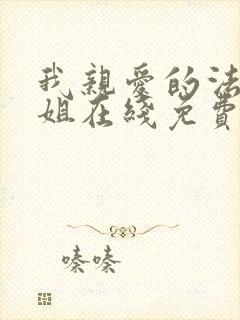 我親愛的法
姐在綫免費
嗪嗪